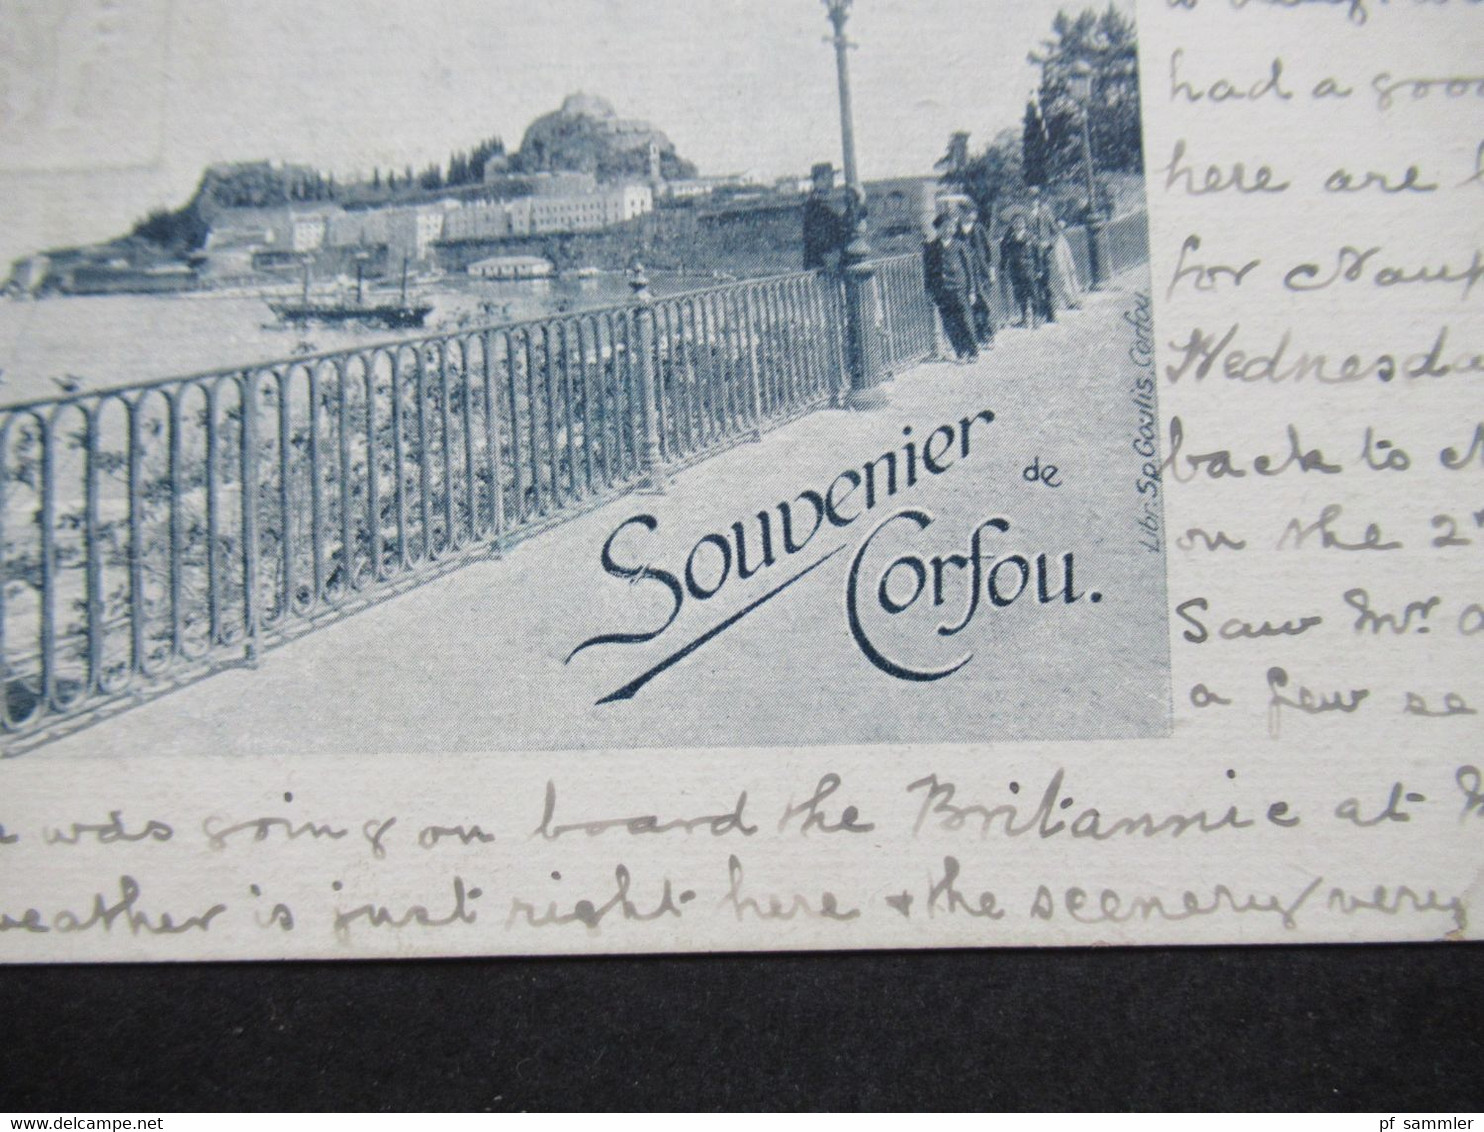 had a good
here are
for
Wednesda
back to
on the 2
Saw Mr.
a few
Souvenier
de
Corfou.
Libr. Sp. Gaslis. Corfou.
was going on board the Britannic at
weather is just right here + the scenery very
pf_sammler
www.delcampe.net